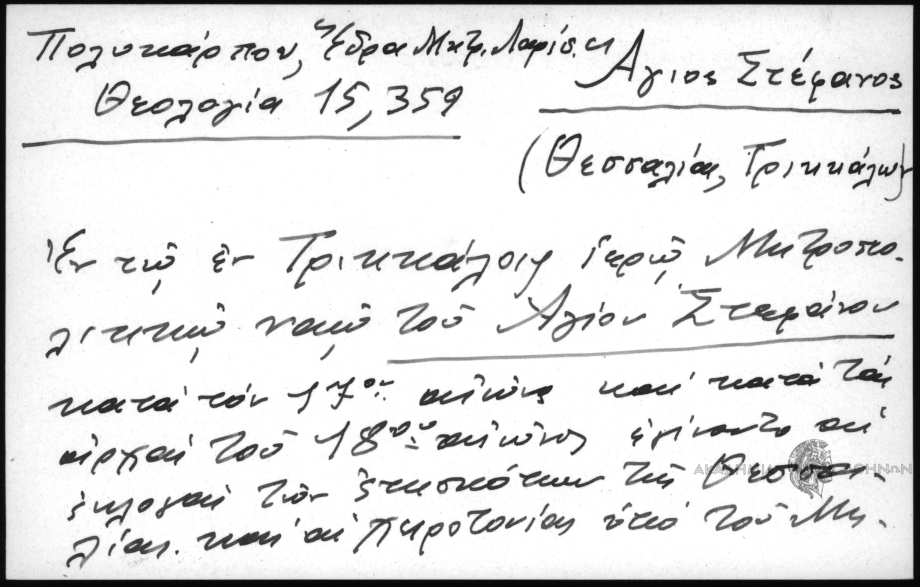 Πολυκάρπου, Ἕδρα Μητρ. Λαρίσ.
Θεολογία 15, 359
Ἅγιος Στέφανος
(Θεσσαλίας, Τρικκάλων)
Ἐν τῷ ἐν Τρικκάλοις ἱερῷ Μητροπο-
λιτικῷ ναῷ τοῦ Ἁγίου Στεφάνου
κατὰ τὸν 17ον αἰῶνα καὶ κατὰ τὰς
ἀρχὰς τοῦ 18ου αἰῶνος ἐγίνοντο αἱ
ἐκλογαὶ τῶν ἐπισκόπων τῆς Θεσσα-
λίας καὶ αἱ χειροτονίαι ὑπὸ τοῦ Μη-
ΑΚΑΔΗΜΙΑ ΑΘΗΝΩΝ